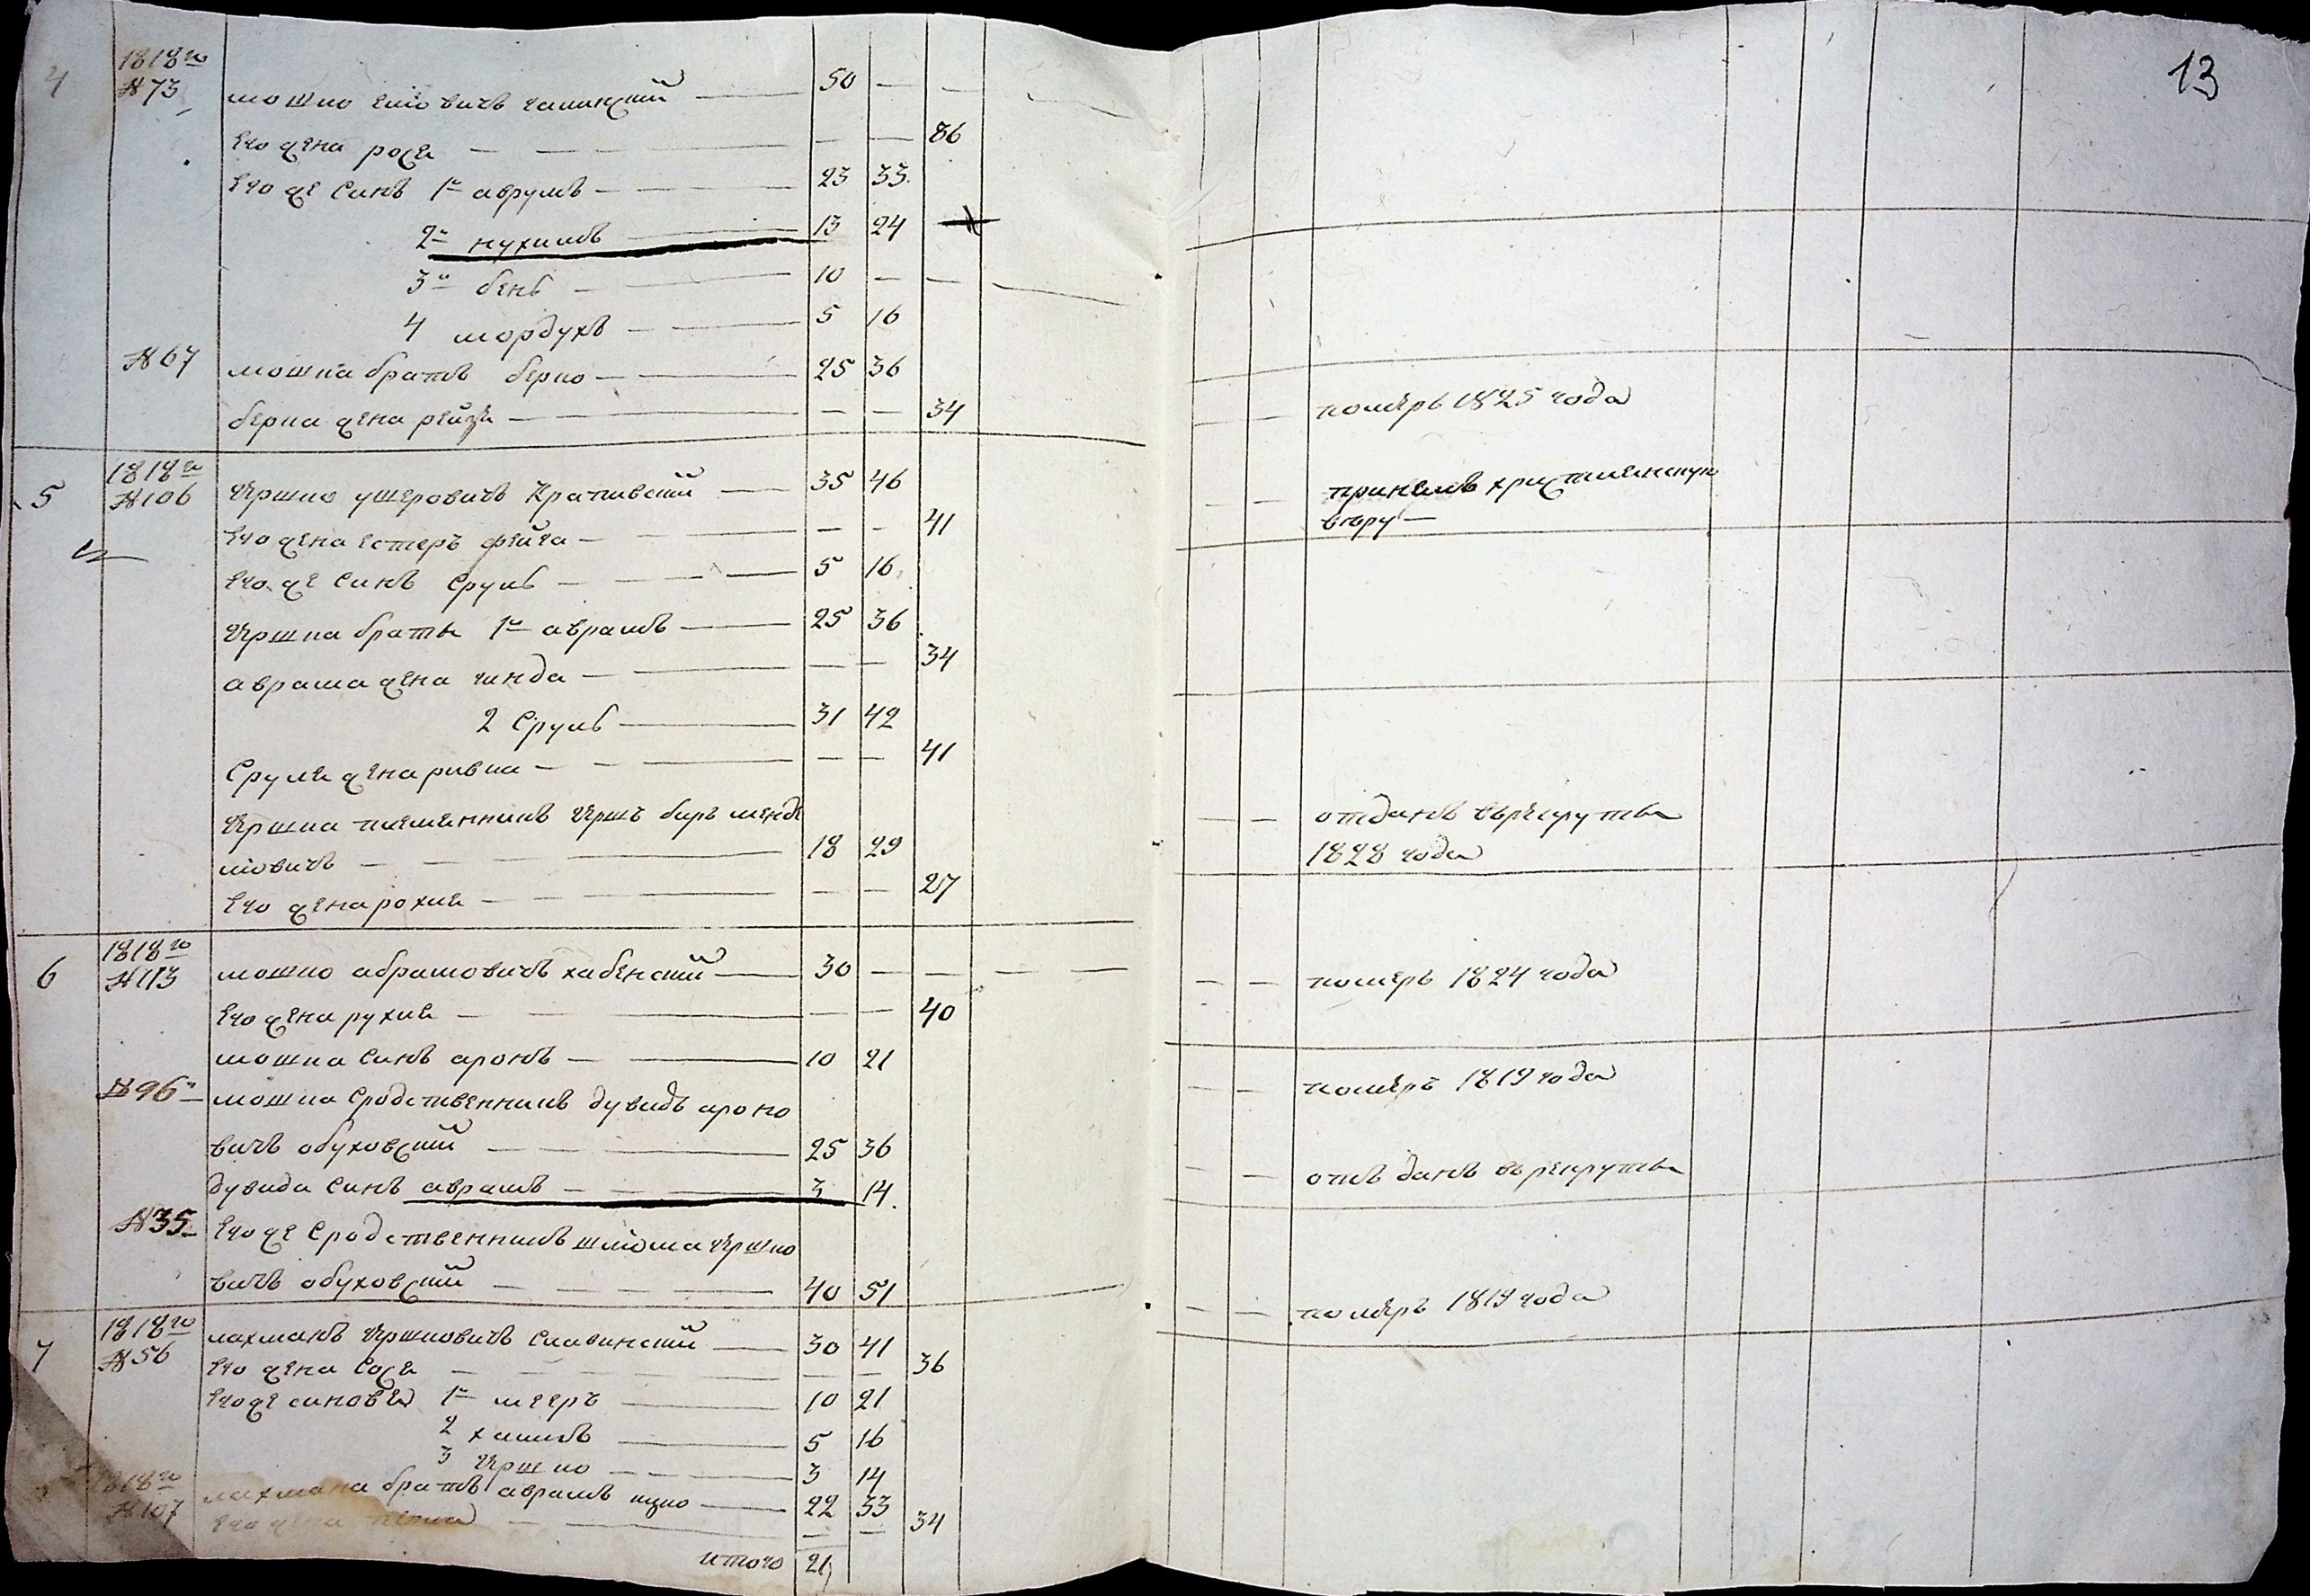 13
4 1818го
№73 мошко елiовичъ галинскiй — 50 — —
Его жена рося — — — — 86
Его же синъ 1й аврумъ — 23 33
2й нухимъ — 13 24
3й бенъ — 10 — —
4 мордухъ — 5 16
№67 мошка братъ берко — 25 36
берка жена рейзя — — — 34 — — померъ 1825 года
5 1818го
№106 Гершко ушеровичъ Крапивскiй — 35 46 — — принялъ християнскую
веру —
Его жена естеръ фейга — — — 41
Его же синъ Сруль — 5 16
Гершка братья 1й аврамъ — 25 36
аврама жена гинда — — — 34
2 Сруль — 31 42
Сруля жена ривка — — — 41
Гершка племенникъ Гершъ беръ менде
лiовичъ — 18 29 — — отданъ въ рекруты
1828 года
Его жена рохля — — — 27
6 1818го
№113 мошко абрамовичъ хабенскiй — 30 — — — — померъ 1824 года
Его жена рухля — — — 40
мошка синъ аронъ — 10 21
№96й мошка Сродственникъ дувидъ ароно — — померъ 1819 года
вичъ обуховскiй — 25 36
дувида синъ аврамъ — 3 14 — — отъ данъ въ рекруты
№35 Его же Сродственникъ шлiома Гершко
вичъ обуховскiй — 40 51 — — померъ 1819 года
7 1818го
№56 лахманъ Гершковичъ Славинскiй — 30 41
Его жена Сося — — — 36
Его же синовья 1й мееръ — 10 21
2 хаимъ — 5 16
3 Гершко — 3 14
1818го
№107 лахмана братъ аврамъ ицко — 22 33
Его жена — — — 34
итого 21